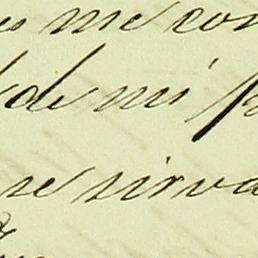 me con
de mi p
se sirva